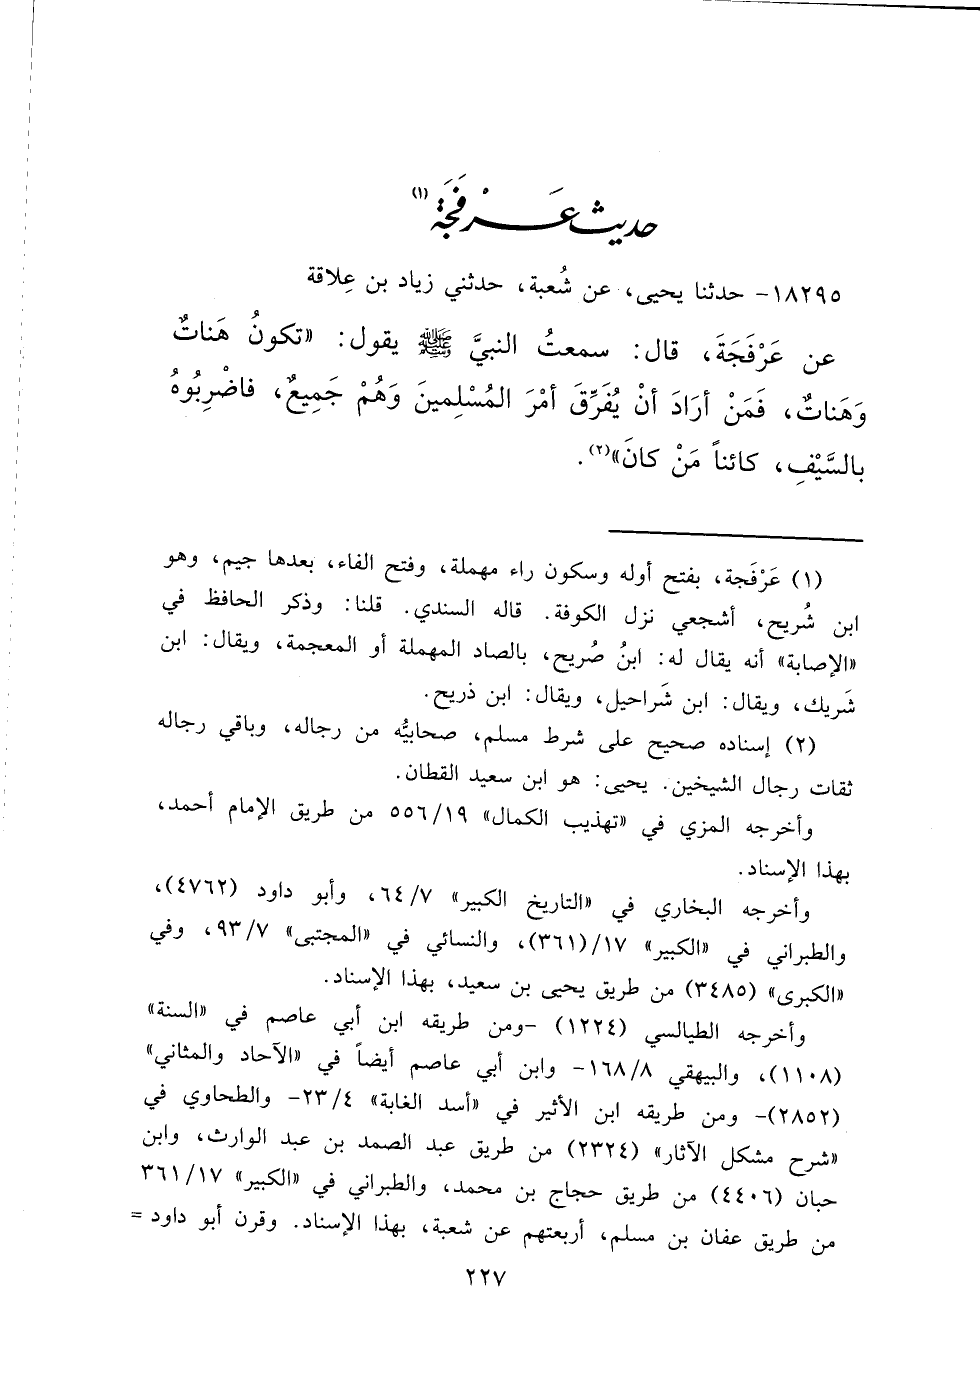 حديث عَرْفَجَةَ(١)
١٨٢٩٥- حدثنا يحيى، عن شُعبة، حدثني زياد بن عِلاقة
عن عَرْفَجَةَ، قال: سمعتُ النبيَّ ﷺ يقول: «تكونُ هَناتٌ
وَهَناتٌ، فَمَنْ أرَادَ أنْ يُفَرِّقَ أمْرَ المُسْلِمينَ وَهُمْ جَمِيعٌ، فاضْرِبُوهُ
بالسَّيْفِ، كائناً مَنْ كانَ»(٢).
(١) عَرْفَجة، بفتح أوله وسكون راء مهملة، وفتح الفاء، بعدها جيم، وهو
ابن شُريح، أشجعي نزل الكوفة. قاله السندي. قلنا: وذكر الحافظ في
«الإصابة» أنه يقال له: ابنُ صُريح، بالصاد المهملة أو المعجمة، ويقال: ابن
شَريك، ويقال: ابن شَراحيل، ويقال: ابن ذريح.
(٢) إسناده صحيح على شرط مسلم، صحابيُّه من رجاله، وباقي رجاله
ثقات رجال الشيخين. يحيى: هو ابن سعيد القطان.
وأخرجه المزي في «تهذيب الكمال» ٥٥٦/١٩ من طريق الإمام أحمد،
بهذا الإسناد.
وأخرجه البخاري في «التاريخ الكبير» ٦٤/٧، وأبو داود (٤٧٦٢)،
والطبراني في «الكبير» ١٧/(٣٦١)، والنسائي في «المجتبى» ٩٣/٧، وفي
«الكبرى» (٣٤٨٥) من طريق يحيى بن سعيد، بهذا الإسناد.
وأخرجه الطيالسي (١٢٢٤) -ومن طريقه ابن أبي عاصم في «السنة»
(١١٠٨)، والبيهقي ١٦٨/٨- وابن أبي عاصم أيضاً في «الآحاد والمثاني»
(٢٨٥٢)- ومن طريقه ابن الأثير في «أسد الغابة» ٢٣/٤- والطحاوي في
«شرح مشكل الآثار» (٢٣٢٤) من طريق عبد الصمد بن عبد الوارث، وابن
حبان (٤٤٠٦) من طريق حجاج بن محمد، والطبراني في «الكبير» ٣٦١/١٧
من طريق عفان بن مسلم، أربعتهم عن شعبة، بهذا الإسناد. وقرن أبو داود =
٢٢٧